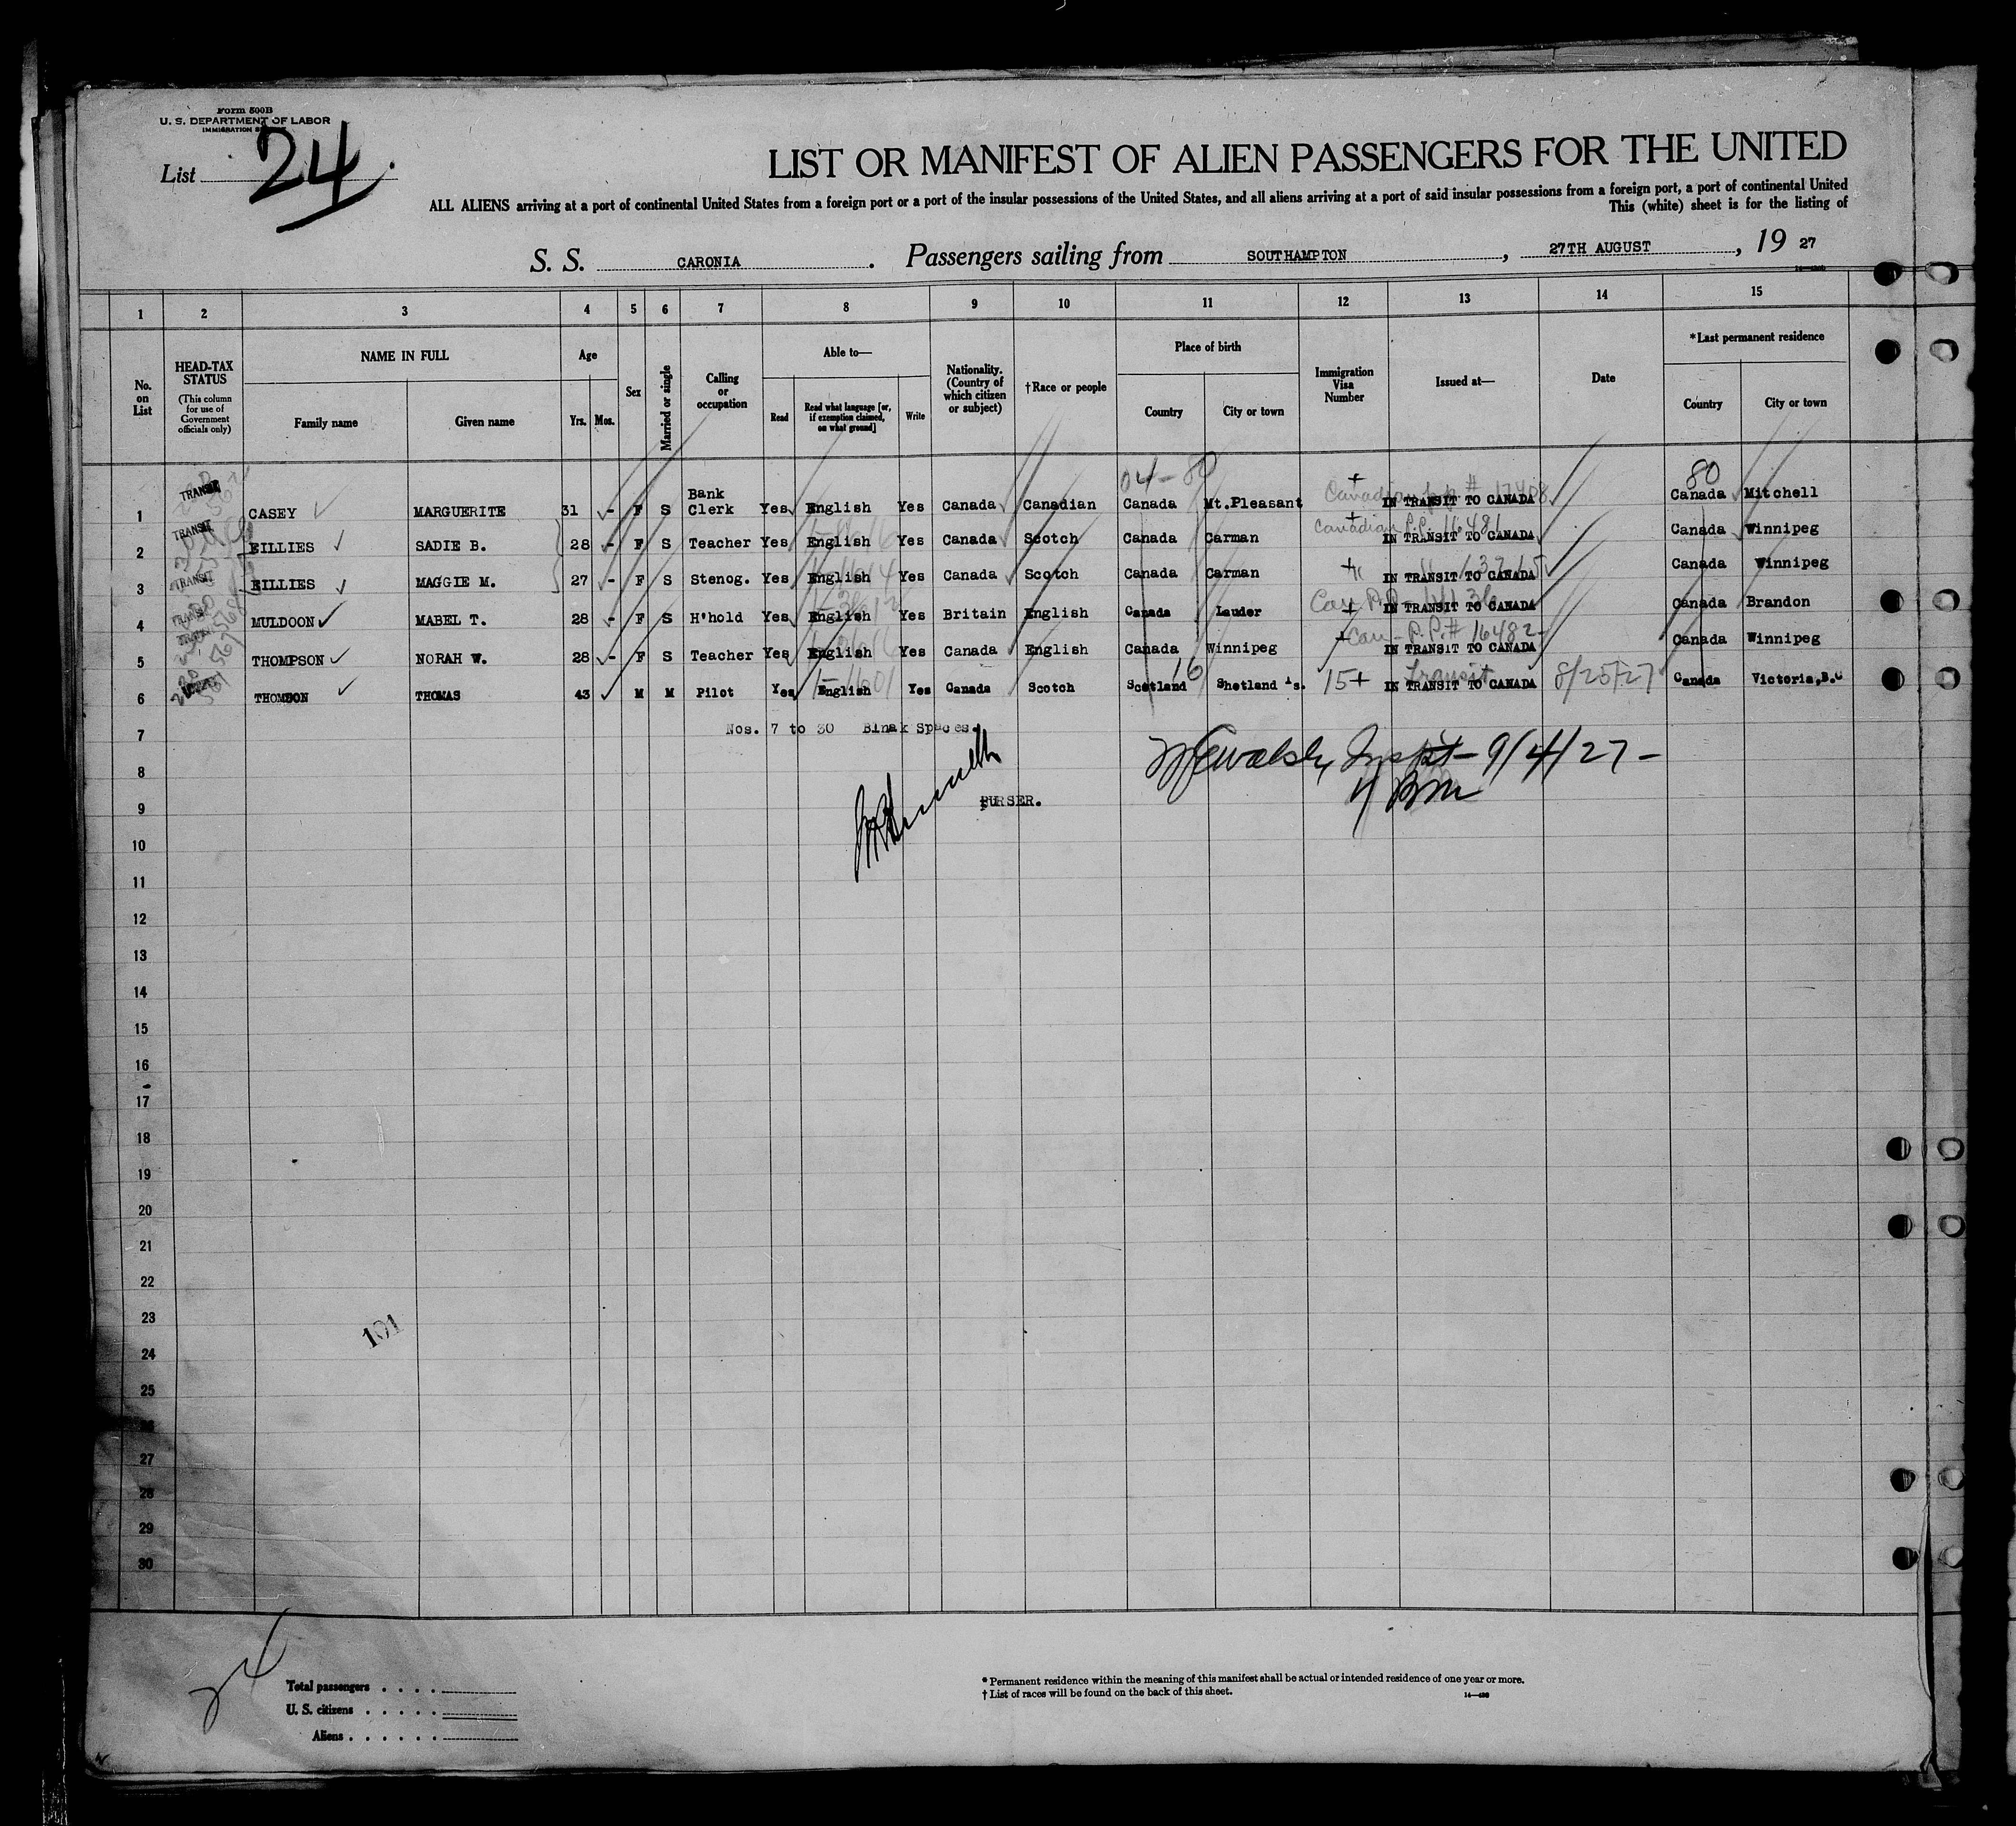 Form 500B
U. S. DEPARTMENT OF LABOR
IMMIGRATION
List 24
LIST OR MANIFEST OF ALIEN PASSENGERS FOR THE UNITED
ALL ALIENS arriving at a port of continental United States from a foreign port or a port of the insular possessions of the United States, and all aliens arriving at a port of said insular possessions from a foreign port, a port of continental United
This (white) sheet is for the listing of
S. S. CARONIA. Passengers sailing from SOUTHAMPTON, 27TH AUGUST, 19 27
1 2 3 4 5 6 7 8 9 10 11 12 13 14 15
No. on List
HEAD-TAX STATUS (This column for use of Government officials only)
NAME IN FULL
Family name
Given name
Age
Yrs. Mos.
Sex
Married or single
Calling or occupation
Able to—
Read
Read what language [or, if exemption claimed, on what ground]
Write
Nationality. (Country of which citizen or subject)
†Race or people
Place of birth
Country
City or town
Immigration Visa Number
Issued at—
Date
*Last permanent residence
Country
City or town
04-80 80
1 TRANSIT CASEY MARGUERITE 31 - F S Bank Clerk Yes English Yes Canada Canadian Canada Mt.Pleasant IN TRANSIT TO CANADA Canada Mitchell
2 TRANSIT EILLIES SADIE B. 28 - F S Teacher Yes English Yes Canada Scotch Canada Carman Canadian P.P. 16481 IN TRANSIT TO CANADA Canada Winnipeg
3 TRANSIT EILLIES MAGGIE M. 27 - F S Stenog. Yes English Yes Canada Scotch Canada Carman IN TRANSIT TO CANADA Canada Winnipeg
4 MULDOON MABEL T. 28 - F S H'hold Yes English Yes Britain English Canada Lauder IN TRANSIT TO CANADA Canada Brandon
5 THOMPSON NORAH W. 28 - F S Teacher Yes English Yes Canada English Canada Winnipeg Can-P.P.# 16482 IN TRANSIT TO CANADA Canada Winnipeg
6 THOMSON THOMAS 43 M M Pilot Yes English Yes Canada Scotch 16 Scotland Shetland Is. 15+ Transit IN TRANSIT TO CANADA 8/25/27 Canada Victoria,B.C
7 Nos. 7 to 30 Blnak Spaces.
8 Inspt-9/4/27-
9 PURSER.
10
11
12
13
14
15
16
17
18
19
20
21
22
23
101
24
25
26
27
28
29
30
24
Total passengers
U. S. citizens
Aliens
* Permanent residence within the meaning of this manifest shall be actual or intended residence of one year or more.
† List of races will be found on the back of this sheet.